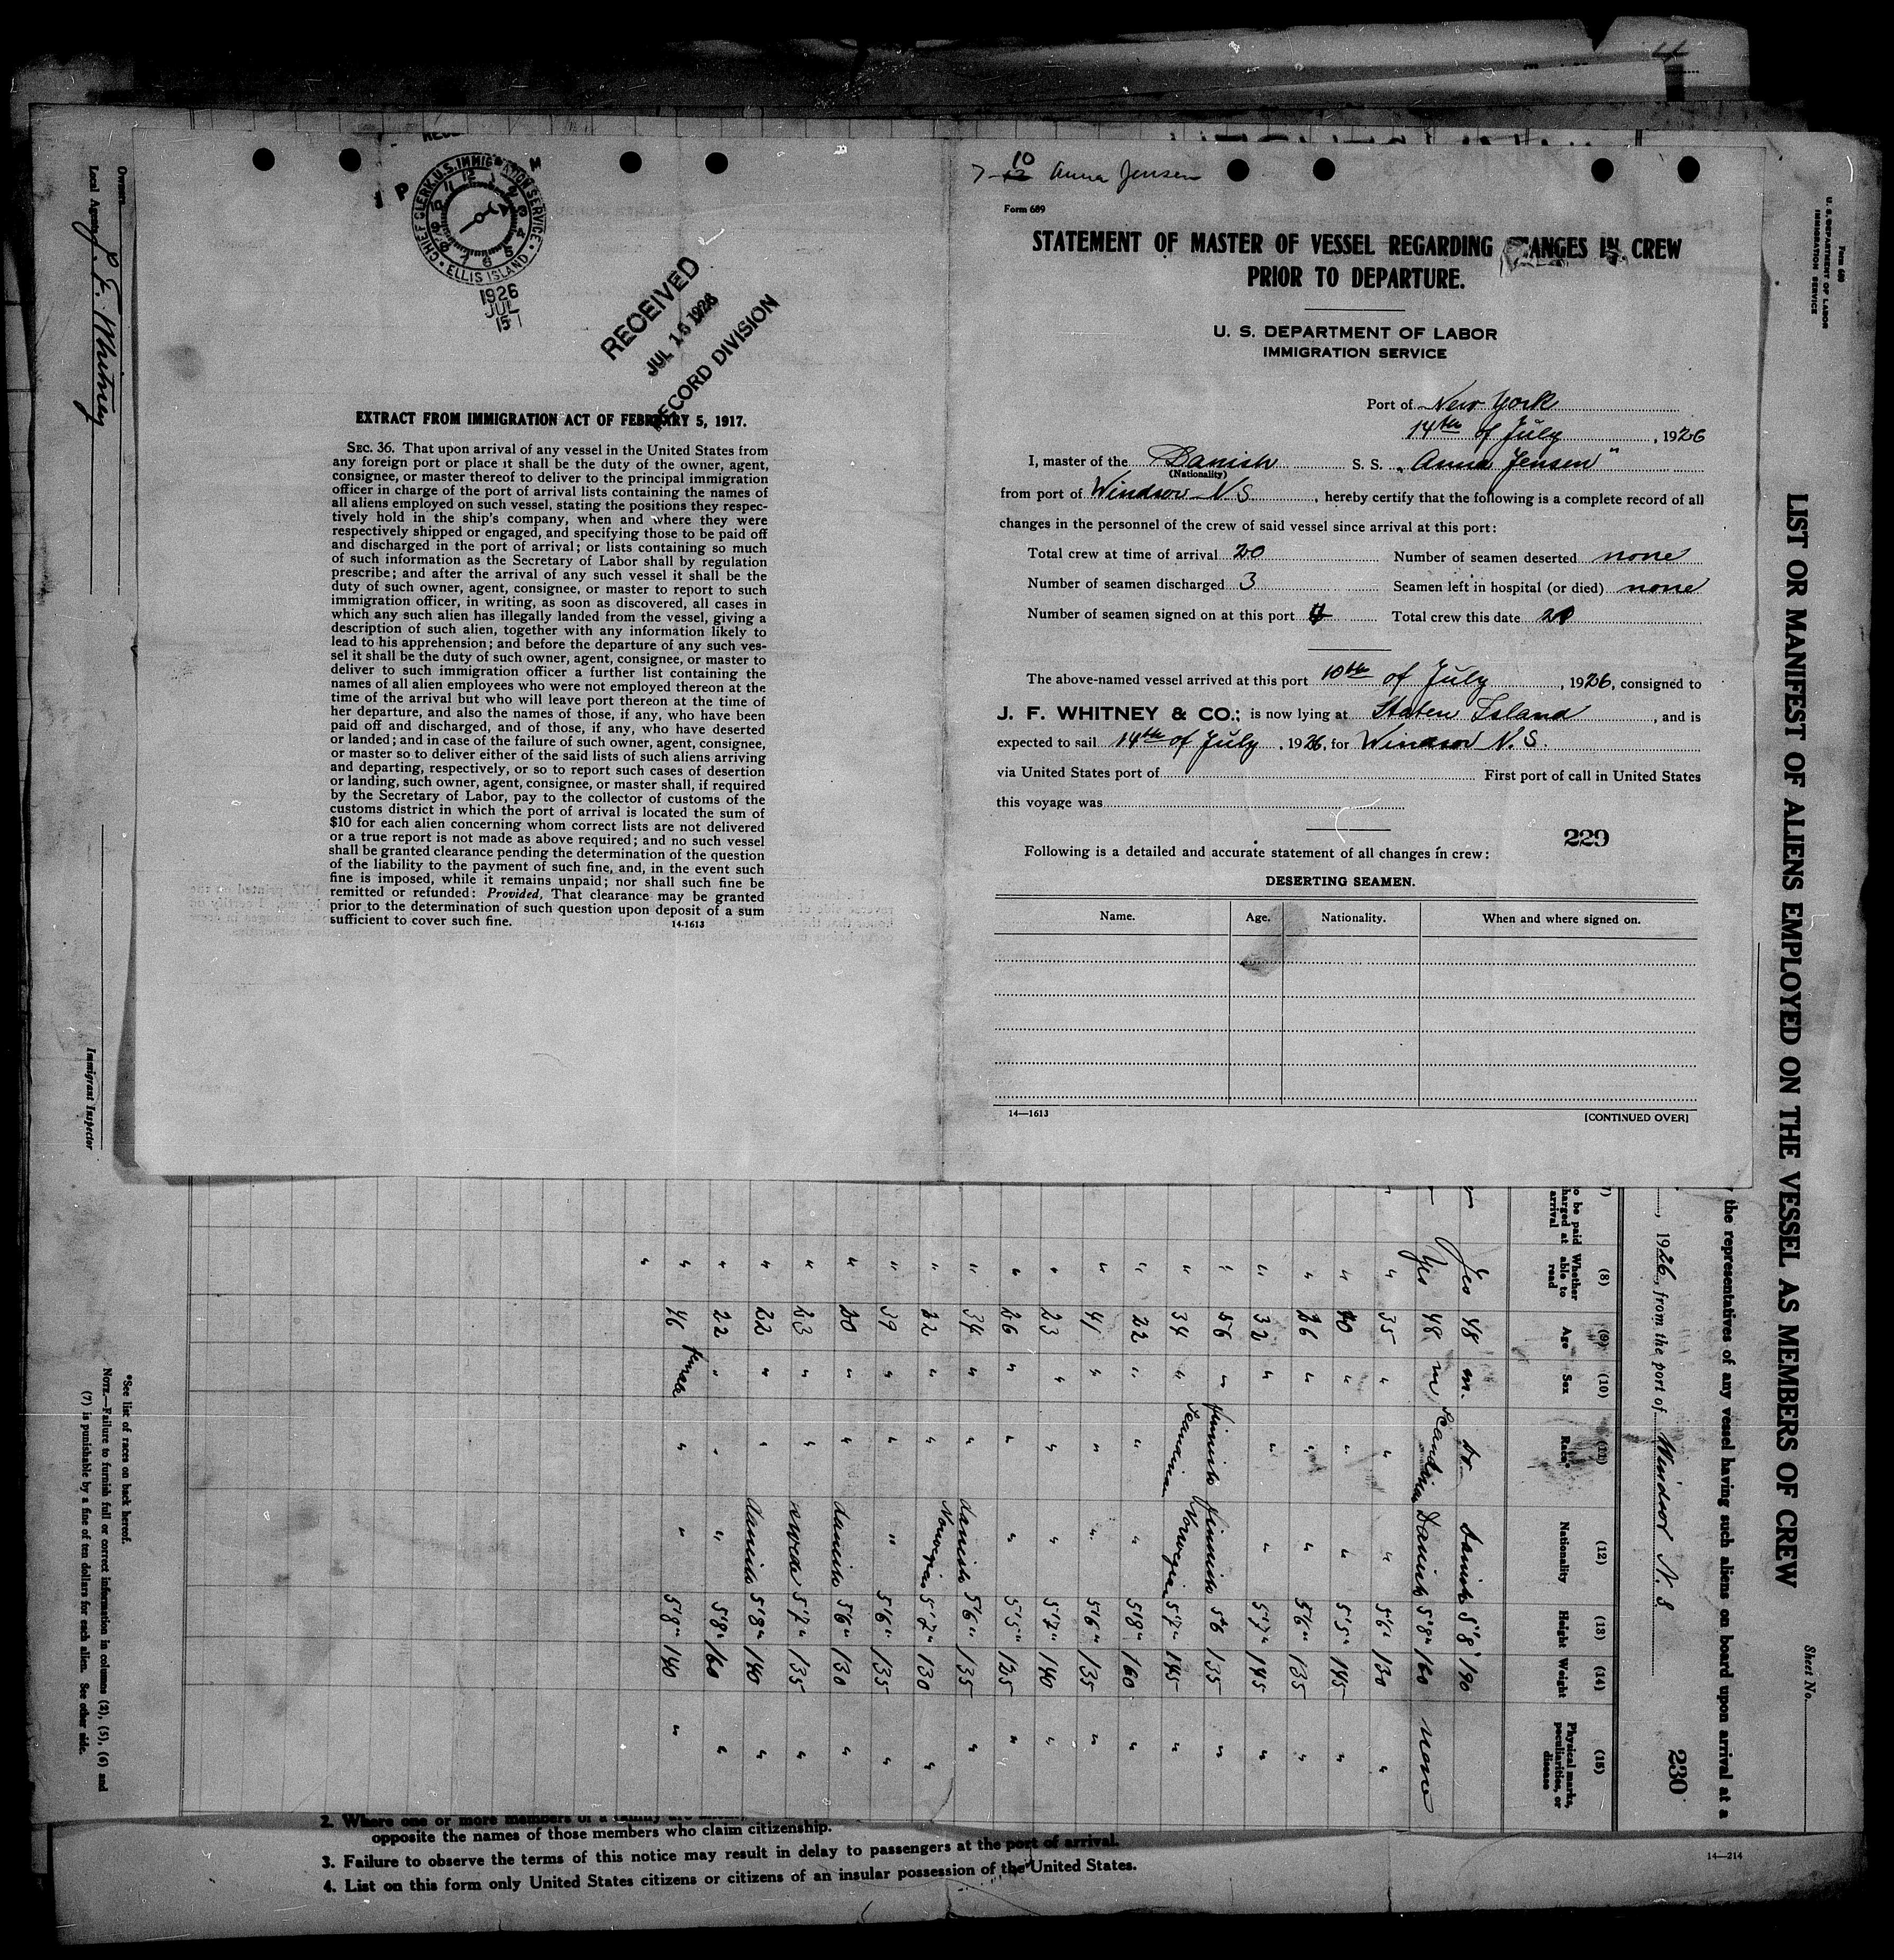 CHIEF CLERK U.S. IMMIGRATION SERVICE
ELLIS ISLAND
1926
JUL
15
RECEIVED
JUL 15 1926
RECORD DIVISION
EXTRACT FROM IMMIGRATION ACT OF FEBRUARY 5, 1917.
SEC. 36. That upon arrival of any vessel in the United States from
any foreign port or place it shall be the duty of the owner, agent,
consignee, or master thereof to deliver to the principal immigration
officer in charge of the port of arrival lists containing the names of
all aliens employed on such vessel, stating the positions they respec-
tively hold in the ship's company, when and where they were
respectively shipped or engaged, and specifying those to be paid off
and discharged in the port of arrival; or lists containing so much
of such information as the Secretary of Labor shall by regulation
prescribe; and after the arrival of any such vessel it shall be the
duty of such owner, agent, consignee, or master to report to such
immigration officer, in writing, as soon as discovered, all cases in
which any such alien has illegally landed from the vessel, giving a
description of such alien, together with any information likely to
lead to his apprehension; and before the departure of any such ves-
sel it shall be the duty of such owner, agent, consignee, or master to
deliver to such immigration officer a further list containing the
names of all alien employees who were not employed thereon at the
time of the arrival but who will leave port thereon at the time of
her departure, and also the names of those, if any, who have been
paid off and discharged, and of those, if any, who have deserted
or landed; and in case of the failure of such owner, agent, consignee,
or master so to deliver either of the said lists of such aliens arriving
and departing, respectively, or so to report such cases of desertion
or landing, such owner, agent, consignee, or master shall, if required
by the Secretary of Labor, pay to the collector of customs of the
customs district in which the port of arrival is located the sum of
$10 for each alien concerning whom correct lists are not delivered
or a true report is not made as above required; and no such vessel
shall be granted clearance pending the determination of the question
of the liability to the payment of such fine, and, in the event such
fine is imposed, while it remains unpaid; nor shall such fine be
remitted or refunded: Provided, That clearance may be granted
prior to the determination of such question upon deposit of a sum
sufficient to cover such fine. 14-1613
7-10 Anna Jensen
Form 689
STATEMENT OF MASTER OF VESSEL REGARDING CHANGES IN CREW
PRIOR TO DEPARTURE.
U. S. DEPARTMENT OF LABOR
IMMIGRATION SERVICE
Port of New York
14th of July, 1926
I, master of the Danish S. S. "Anna Jensen"
(Nationality)
from port of Windsor N S, hereby certify that the following is a complete record of all
changes in the personnel of the crew of said vessel since arrival at this port:
Total crew at time of arrival 20 Number of seamen deserted none
Number of seamen discharged 3 Seamen left in hospital (or died) none
Number of seamen signed on at this port 4 Total crew this date 21
The above-named vessel arrived at this port 10th of July, 1926, consigned to
J. F. WHITNEY & CO.; is now lying at Staten Island, and is
expected to sail 14th of July, 1926, for Windsor N. S.
via United States port of First port of call in United States
this voyage was
229
Following is a detailed and accurate statement of all changes in crew:
DESERTING SEAMEN.
Name. Age. Nationality. When and where signed on.
14—1613 [CONTINUED OVER]
Form 680
U. S. DEPARTMENT OF LABOR
IMMIGRATION SERVICE
LIST OR MANIFEST OF ALIENS EMPLOYED ON THE VESSEL AS MEMBERS OF CREW
Sheet No.
the representatives of any vessel having such aliens on board upon arrival at a
, 1926, from the port of Windsor N. S
230
(8) (9) (10) (11) (12) (13) (14) (15)
Whether able to read Age Sex Race* Nationality Height Weight Physical marks, peculiarities, or disease
Yes 48 m. do Danish 5'8 190
Yes 48 m Scandinav Danish 5'8" 160 none
" 35 " " " 5'6" 130 "
" 40 " " " 5'5" 145 "
" 26 " " " 5'6" 135 "
" 32 " " " 5'7" 145 "
" 56 " Finnish Finnish 5'6 135 "
" 34 " Scandinav Norwegian 5'7" 145 "
" 22 " " " 5'8" 160 "
" 41 " " " 5'6" 135 "
" 23 " " " 5'7" 140 "
" 26 " " " 5'5" 125 "
" 34 " " danish 5'6" 135 "
" 22 " " Norwegian 5'7" 130 "
" 39 " " " 5'6" 135 "
" 20 " " danish 5'6" 130 "
" 23 " " sweda 5'7" 135 "
" 22 " " danish 5'8" 140 "
" 22 " " " 5'8" 160 "
" 46 female " " 5'8" 140 "
"
Owners
Local Agents J. F. Whitney
Immigrant Inspector
*See list of races on back hereof.
NOTE.—Failure to furnish full or correct information in columns (2), (5), (6) and
(7) is punishable by a fine of ten dollars for each alien. See other side.
14—214
2. Where one or more members of a family are
opposite the names of those members who claim citizenship.
3. Failure to observe the terms of this notice may result in delay to passengers at the port of arrival.
4. List on this form only United States citizens or citizens of an insular possession of the United States.